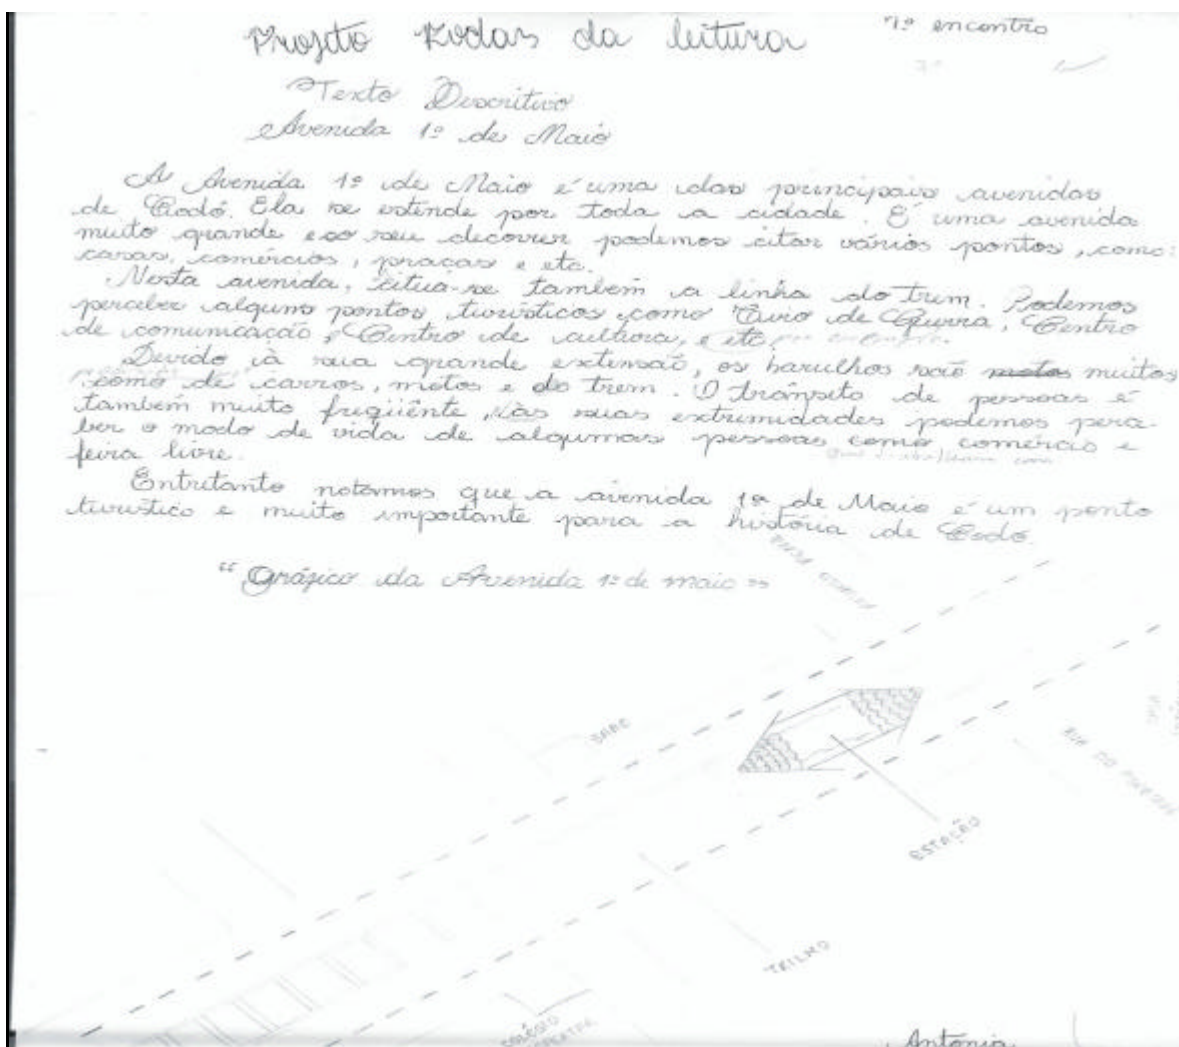 Projeto Rodas da leitura
1º encontro
Texto Descritivo
Avenida 1º de Maio
A Avenida 1º de Maio é uma das principais avenidas
de Codó. Ela se estende por toda a cidade. É uma avenida
muito grande e ao seu decorrer podemos citar vários pontos, como:
casas, comércios, praças e etc.
Nesta avenida, situa-se também a linha do trem. Podemos
perceber alguns pontos turísticos como Tiro de Guerra, Centro
de comunicação, Centro de cultura, e etc.
Devido à sua grande extensão, os barulhos são motos muitos
como de carros, motos e do trem. O trânsito de pessoas é
também muito freqüente, nas suas extremidades podemos perce-
ber o modo de vida de algumas pessoas como comércio e
feira livre.
Entretanto notamos que a avenida 1º de Maio é um ponto
turístico e muito importante para a história de Codó.
"Gráfico da Avenida 1º de maio"
ESTAÇÃO
TRILHO
COLÉGIO
Antonia